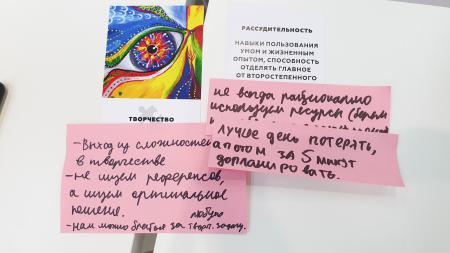 ТВОРЧЕСТВО
- Выход из сложностей
в творчестве
- не ищем референсов,
а ищем оригинальное
решение.
- нам можно браться за любую творч. задачу.
РАССУДИТЕЛЬНОСТЬ
НАВЫКИ ПОЛЬЗОВАНИЯ
УМОМ И ЖИЗНЕННЫМ
ОПЫТОМ, СПОСОБНОСТЬ
ОТДЕЛЯТЬ ГЛАВНОЕ
ОТ ВТОРОСТЕПЕННОГО
не всегда рационально
используем ресурсы (берем
ЛУЧШЕ ДЕНЬ ПОТЕРЯТЬ,
а потом за 5 минут
допланировать.